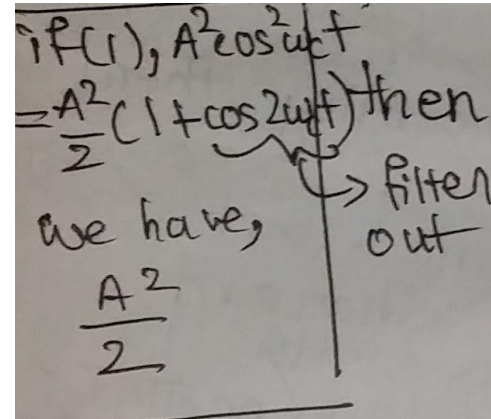 if (1), A²cos²ωct
= A²/2 (1 + cos2ωct) then
→ filter
we have, out
A²/2